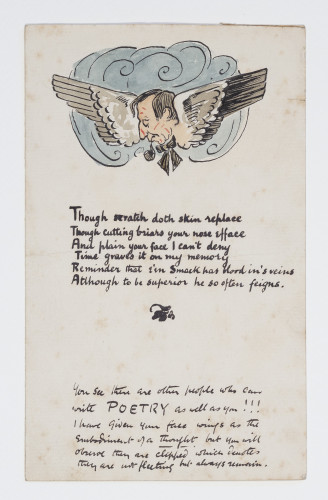 Though scratch doth skin replace
Though cutting briars your nose efface
And plain your face I can't deny
Time graves it on my memory
Reminder that e'en Smack has blood in's veins
Although to be superior he so often feigns.
You see there are other people who can
write POETRY as well as you !!!
I have given your face wings as the
Embodiment of a thought, but you will
observe they are clipped, which denotes
they are not fleeting but always remain.